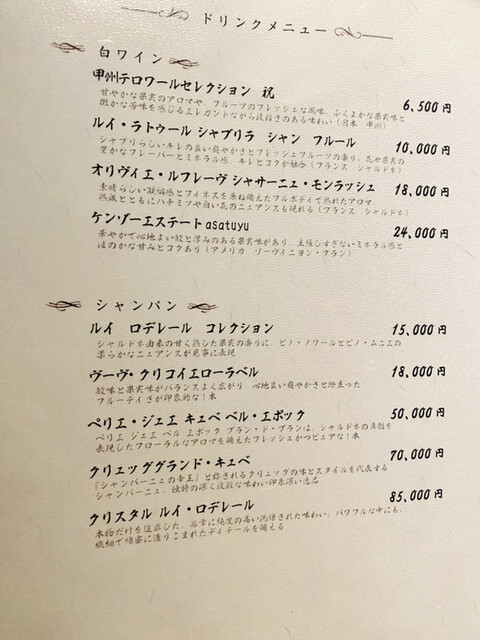 ドリンクメニュー
白ワイン
甲州テロワールセレクション 祝
6,500円
甘やかな果実のアロマや、フルーツのフレッシュな風味、ふくよかな果実味と
微かな苦味を感じるエレガントながら複雑さのある味わい（日本 甲州）
ルイ・ラトゥール シャブリラ シャンフルール
10,000円
シャブリらしいキレの良い爽やかさとフレッシュフルーツの香り。花や果実の
豊かなフレーバーとミネラル感、キレとコクが融合（フランス シャルドネ）
オリヴィエ・ルフレーヴ シャサーニュ・モンラッシュ
18,000円
素晴らしい凝縮感とフィネスを兼ね備えたフルボディで熟れたアロマ
熟成とともにハチミツや白い花のニュアンスも現れる（フランス シャルドネ）
ケンゾーエステート asatuyu
24,000円
華やかで心地よい酸と厚みのある果実味があり、主張しすぎないミネラル感と
ほのかな甘みとコクあり（アメリカ ソーヴィニヨン・ブラン）
シャンパン
ルイ ロデレール コレクション
15,000円
シャルドネ由来の甘く熟した果実の香りに、ピノ・ノワールとピノ・ムニエの
柔らかなニュアンスが見事に表現
ヴーヴ・クリコイエローラベル
18,000円
酸味と果実味がバランスよく広がり、心地良い爽やかさと
フルーティさが印象的な1本
ペリエ・ジュエ キュベ ベル・エポック
50,000円
ペリエ ジュエ ベル エポック ブラン・ド・ブランは、シャルドネの真髄を
表現したフローラルなアロマを備えたフレッシュかつピュアな1本
クリュッググランド・キュベ
70,000円
『シャンパーニュの帝王』と称されるクリュッグの味とスタイルを代表する
シャンパーニュ。独特の深く複雑な味わい印象深い逸品
クリスタル ルイ・ロデレール
85,000円
本物だけを追求した、非常に純度の高い洗練された味わい。パワフルな中にも、
繊細で緻密に造りこまれたディテールを備える